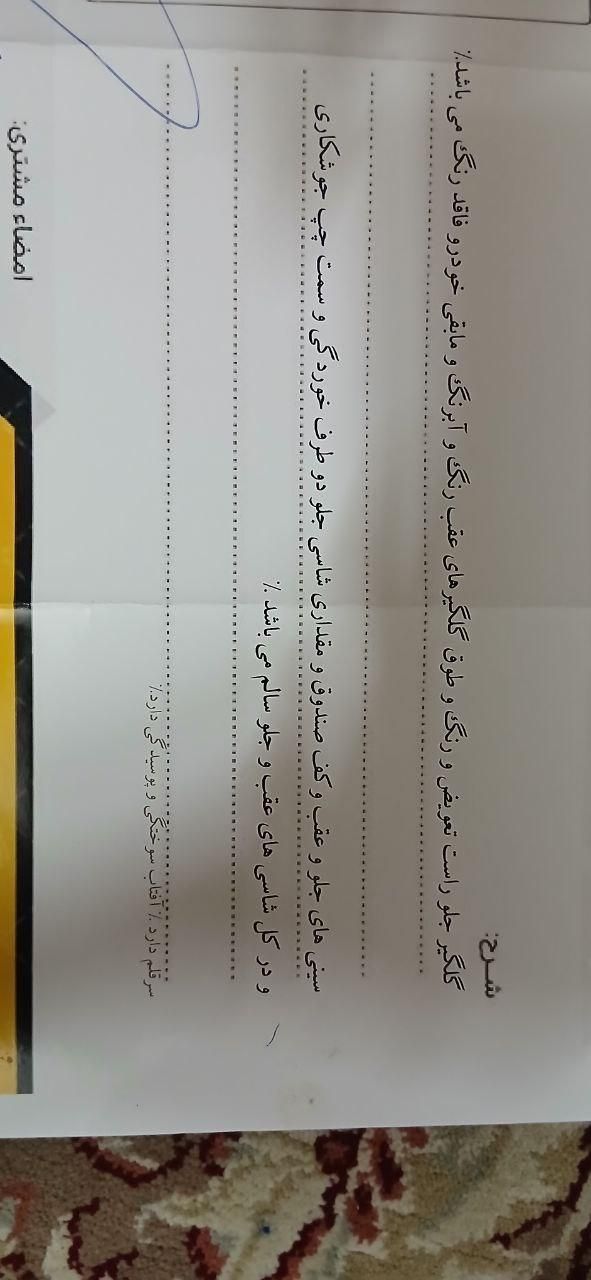 شرح:
گلگیر جلو راست تعویض و رنگ و طوق گلگیرهای عقب رنگ و آبرنگ و مابقی خودرو فاقد رنگ می باشد٪
سینی های جلو و عقب و کف صندوق و مقداری شاسی جلو دو طرف خوردگی و سمت چپ جوشکاری
و در کل شاسی های عقب و جلو سالم می باشد٪
سر قلم دارد٪ آفتاب سوختگی و پوسیدگی دارد٪
امضاء مشتری: